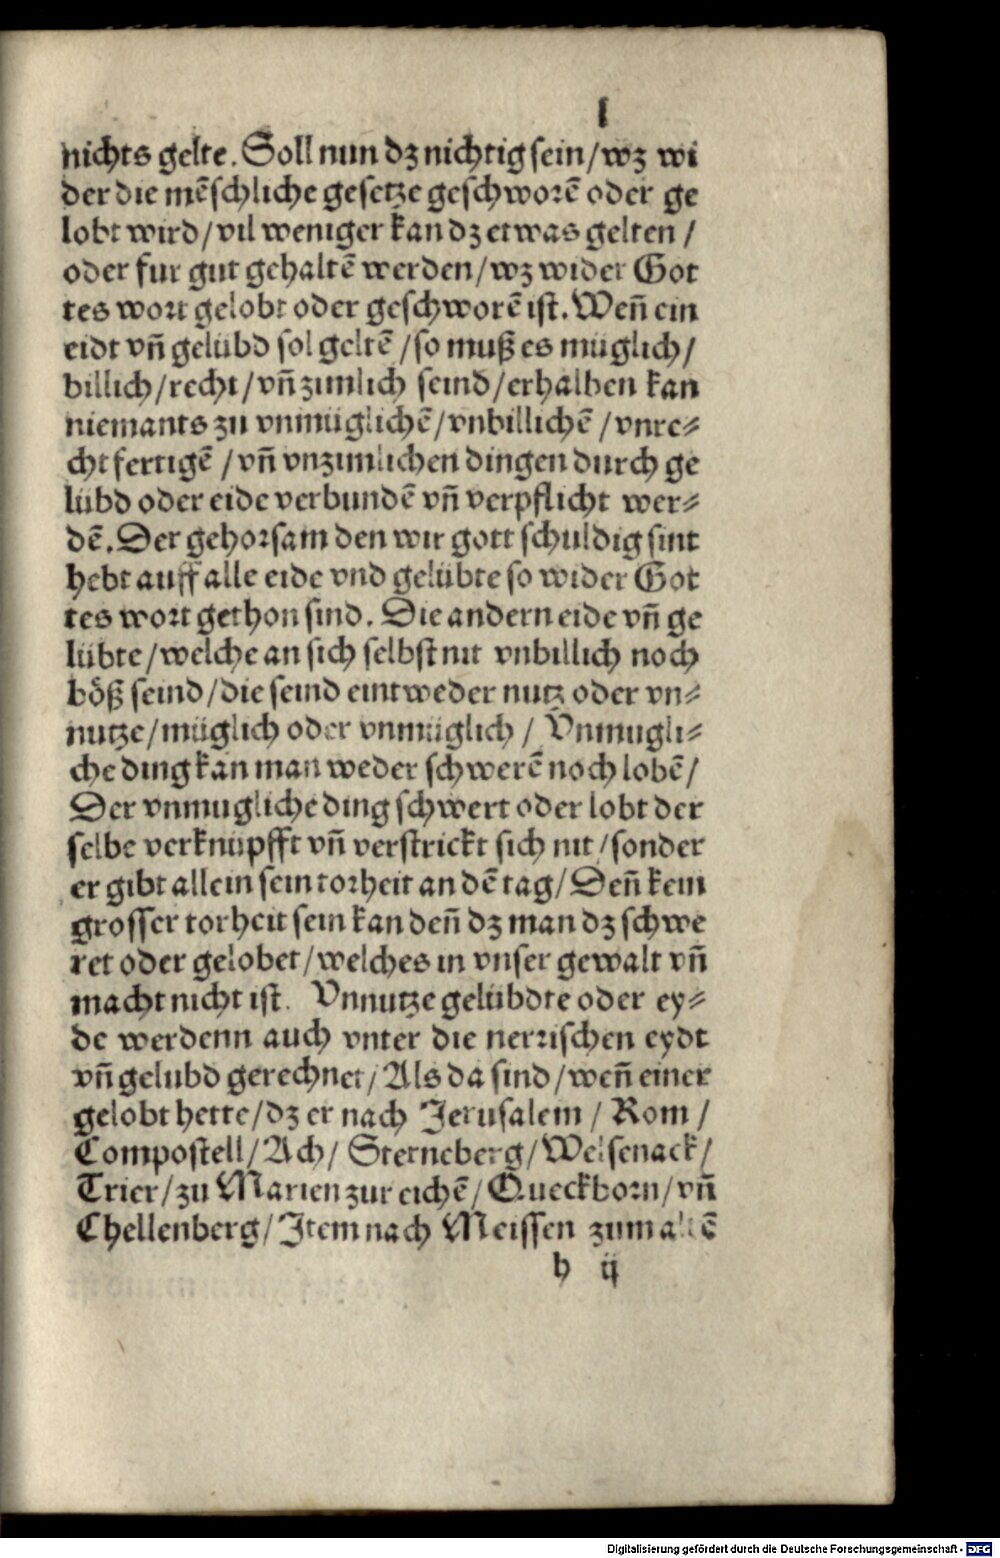 l
nichts gelte. Soll nun dz nichtig sein/wz wi
der die mēschliche gesetze geschworē oder ge
lobt wird/vil weniger kan dz etwas gelten /
oder fur gut gehaltē werden/wz wider Got
tes wort gelobt oder geschworē ist. Weñ ein
eidt vñ gelübd sol geltē /so muß es müglich/
billich/recht/vñ zimlich seind/erhalben kan
niemants zu vnmüglichē/vnbillichē /vnre⸗
chtfertigē /vñ vnzimlichen dingen durch ge
lübd oder eide verbundē vñ verpflicht wer⸗
dē. Der gehorsam den wir gott schuldig sint
hebt auff alle eide vnd gelübte so wider Got
tes wort gethon sind. Die andern eide vñ ge
lübte/welche an sich selbst nit vnbillich noch
böß seind/die seind eintweder nutz oder vn⸗
nutze/müglich oder vnmüglich / Vnmugli⸗
che ding kan man weder schwerē noch lobē/
Der vnmugliche ding schwert oder lobt der
selbe verknüpfft vñ verstrickt sich nit/sonder
er gibt allein sein torheit an dē tag/Deñ kein
grosser torheit sein kan deñ dz man dz schwe
ret oder gelobet/welches in vnser gewalt vñ
macht nicht ist. Vnnutze gelübdte oder ey⸗
de werdenn auch vnter die nerrischen eydt
vñ gelubd gerechnet/Als da sind/weñ einer
gelobt hette/dz er nach Jerusalem / Rom /
Compostell/Ach/ Sterneberg/Welsenack/
Trier/zu Marien zur eichē/Queckborn/vñ
Chellenberg/Item nach Meissen zum altē
h ij
Digitalisierung gefördert durch die Deutsche Forschungsgemeinschaft - DFG